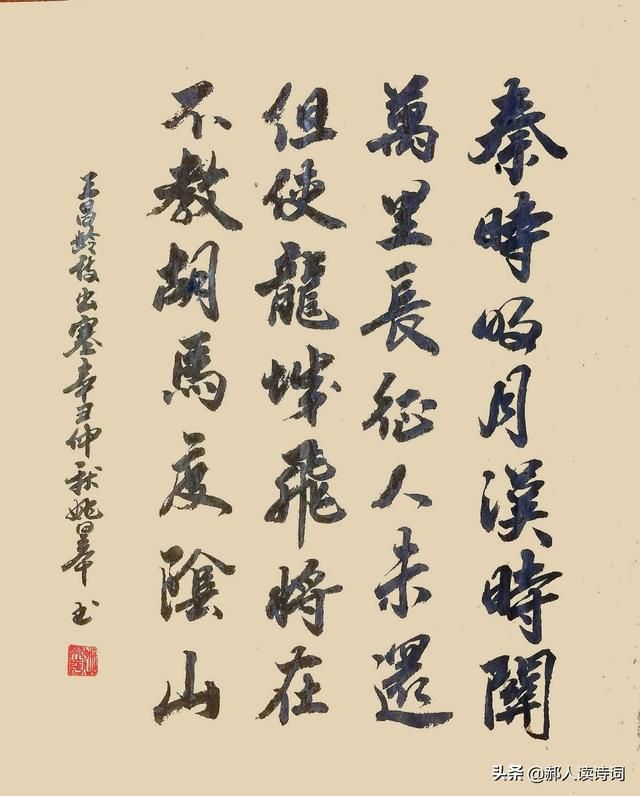 秦時明月漢時關
萬里長征人未還
但使龍城飛將在
不教胡馬度陰山
王昌龄詩出塞辛丑仲秋姚书
头条 @郝人读诗词